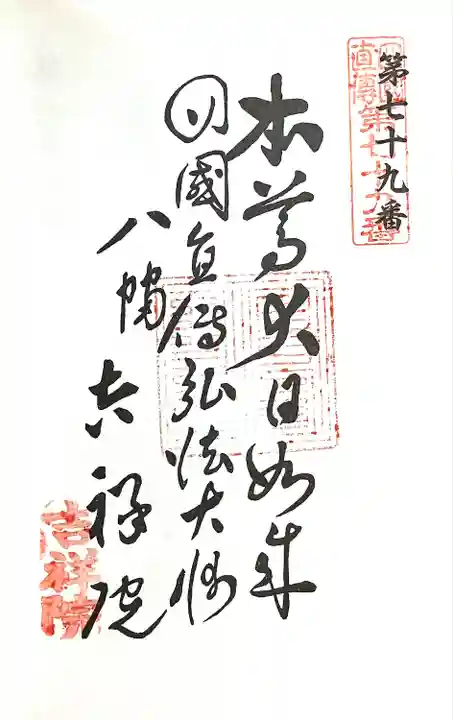 第七十九番
直傳第七十九番
本尊大日如来
四國直傳弘法大師
八幡
吉祥院
吉祥院